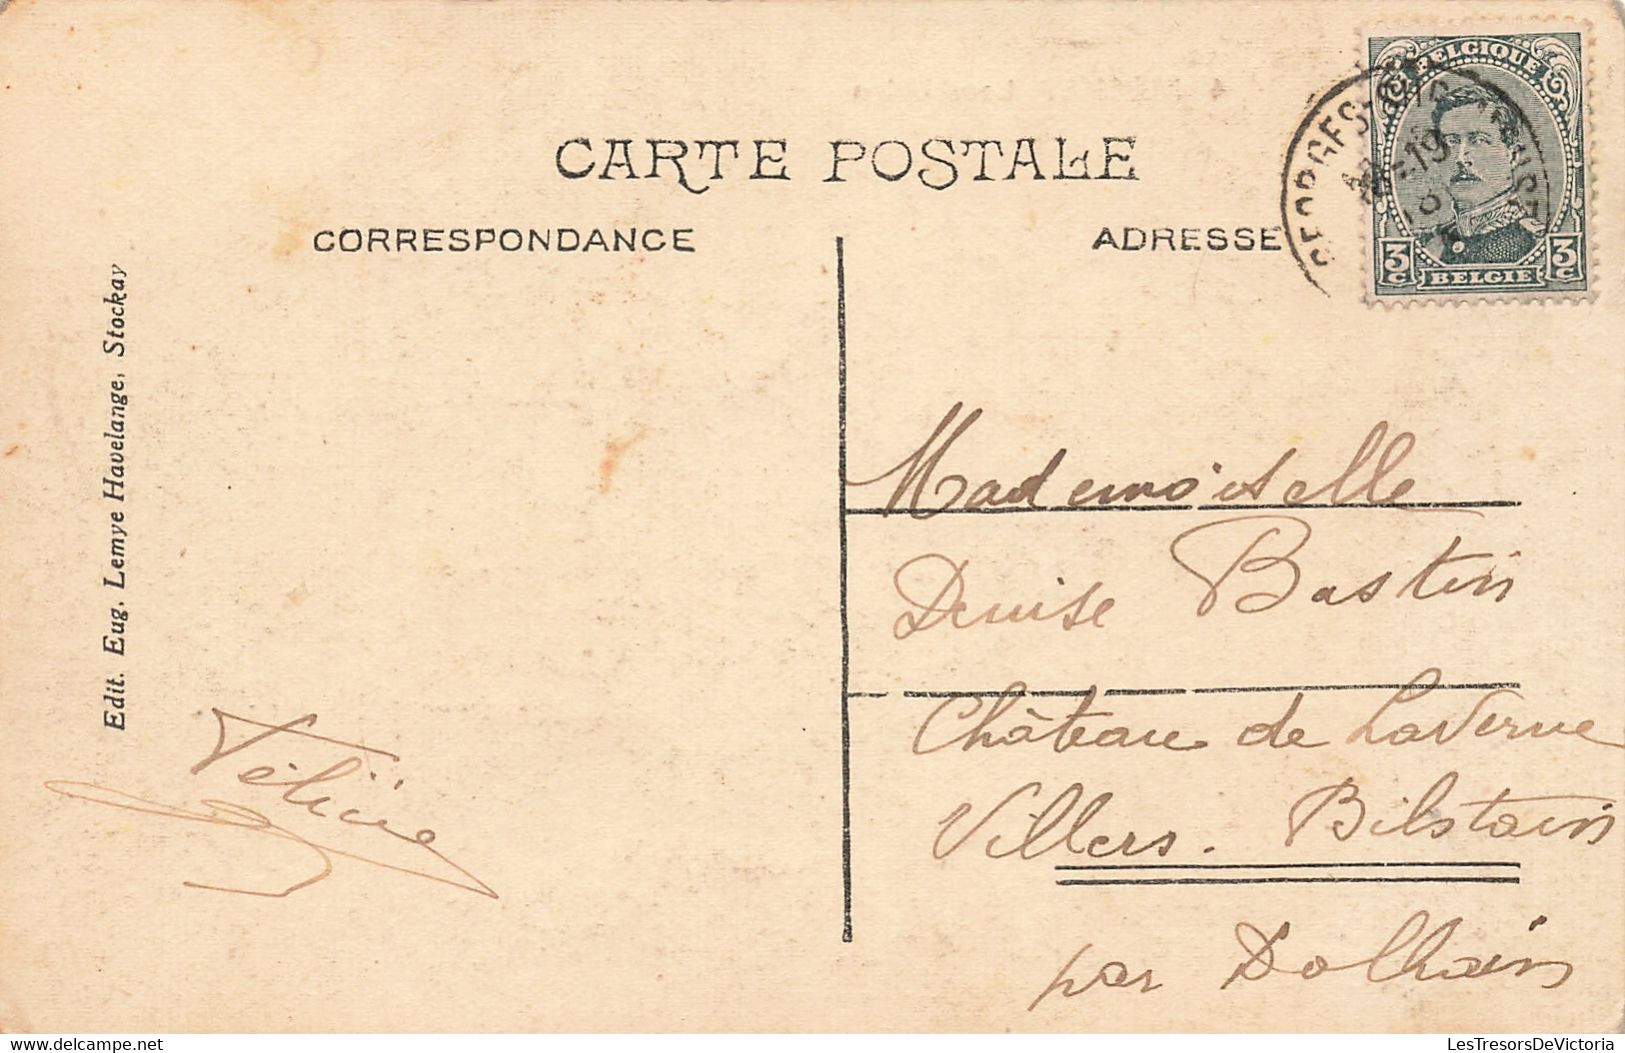 BELGIQUE
CARTE POSTALE
CORRESPONDANCE
ADRESSE
3 C
BELGIE
3 C
Edit. Eug. Lemye Havelange, Stockay
Mademoiselle
Denise Bastin
Château de LaVerne
Villers. Bilstain
par Dolhain
delcampe.net
LesTresorsDeVictoria